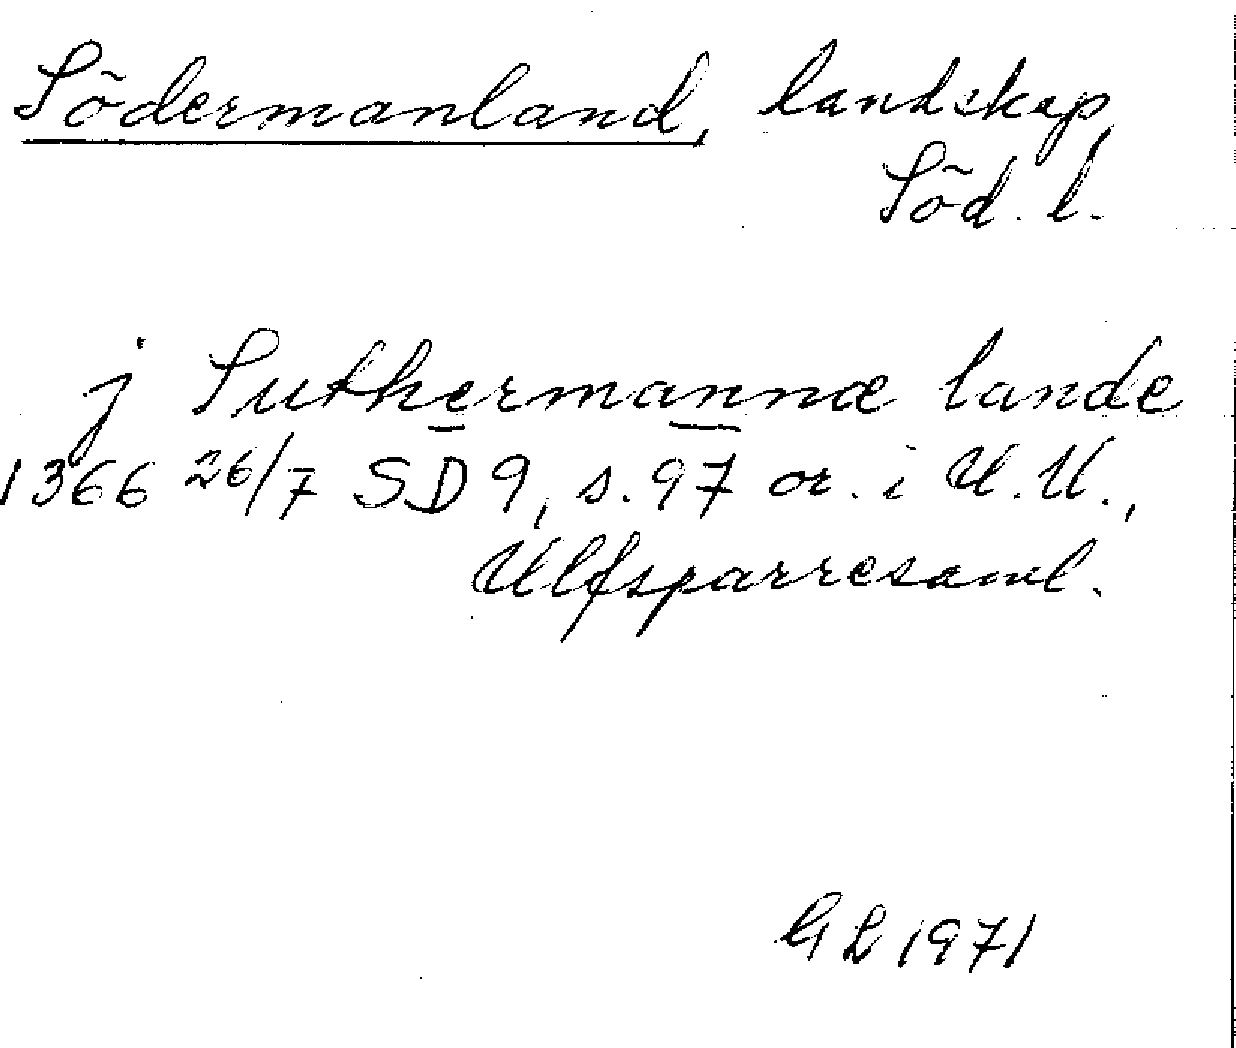 Södermanland, landskap,
Söd. l.
j Suthermannæ lande
1366 26/7 SD 9, s. 97 or. i U.U.,
Ulfsparresaml.
GL 1971